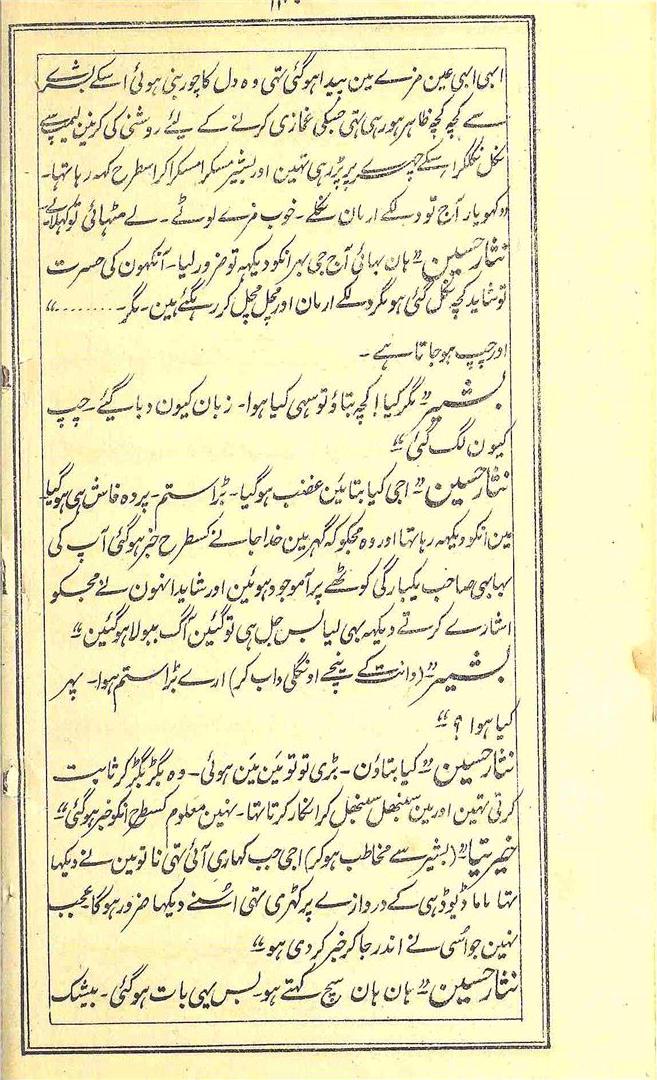 ابہی ابہی عین مزے مین پیدا ہوگئی تہی وہ دل کا چور بنی ہوئی اسکے بشرے
سے کچہ کچہ ظاہر ہو رہی تہی جسکی غمازی کرنے کے لیئے روشنی کی کرنین لیمپ سے
نکل نکلکر اسکے چہرے پر پڑ رہی تہین اور بشیر مسکرا مسکرا کر اسطرح کہہ رہا تہا۔
”دیکہو یار آج تو دلکے ارمان نکلے۔ خوب مزے لوٹے۔ لے مٹہائی تو کہلائیے“
نثار حسین ”ہان بہائی آج جی بہر انکو دیکہہ تو ضرور لیا۔ آنکہون کی حسرت
تو شاید کچہ نکل گئی ہو مگر دلکے ارمان اور مچل مچل کر رہگئے ہین۔ مگر۔........“
اور چپ ہو جاتا ہے۔
بشیر ”مگر کیا! کچہ بتاؤ تو سہی کیا ہوا۔ زبان کیون دبا گئے۔ چپ
کیون لگ گئی“
نثار حسین ”اجی کیا بتائین غضب ہوگیا۔ بڑا ستم۔ پردہ فاش ہی ہوگیا
مین انکو دیکہہ رہا تہا اور وہ مجکو کہ گہر مین خدا جانے کسطرح خبر ہوگئی آپ کی
بہابی صاحب یکبارگی کوٹہے پر آموجود ہوئین اور شاید انہون نے مجکو
اشارے کرتے دیکہہ بہی لیا بس جل ہی تو گئین آگ ببولا ہوگئین“
بشیر ”(دانت کے نیچے اونگلی داب کر) ارے بڑا ستم ہوا۔ پہر
کیا ہوا؟“
نثار حسین ”کیا بتاؤن۔ بڑی تو تو مین مین ہوئی۔ وہ بگڑ بگڑ کر ثابت
کرتی تہین اور مین سنبہل سنبہل کر انکار کرتا تہا۔ نہین معلوم کسطرح انکو خبر ہوگئی“
”(بشیر سے مخاطب ہوکر) اجی جب کہاری آئی تہی نا تو مین نے دیکہا
تہا ماما ڈیوڈہی کے دروازے پر کہڑی تہی اسنے دیکہا ضرور ہوگا عجب
نہین جو اسی نے اندر جاکر خبر کر دی ہو“
نثار حسین ”ہان ہان سچ کہتے ہو۔ بس یہی بات ہوگئی۔ بیشک